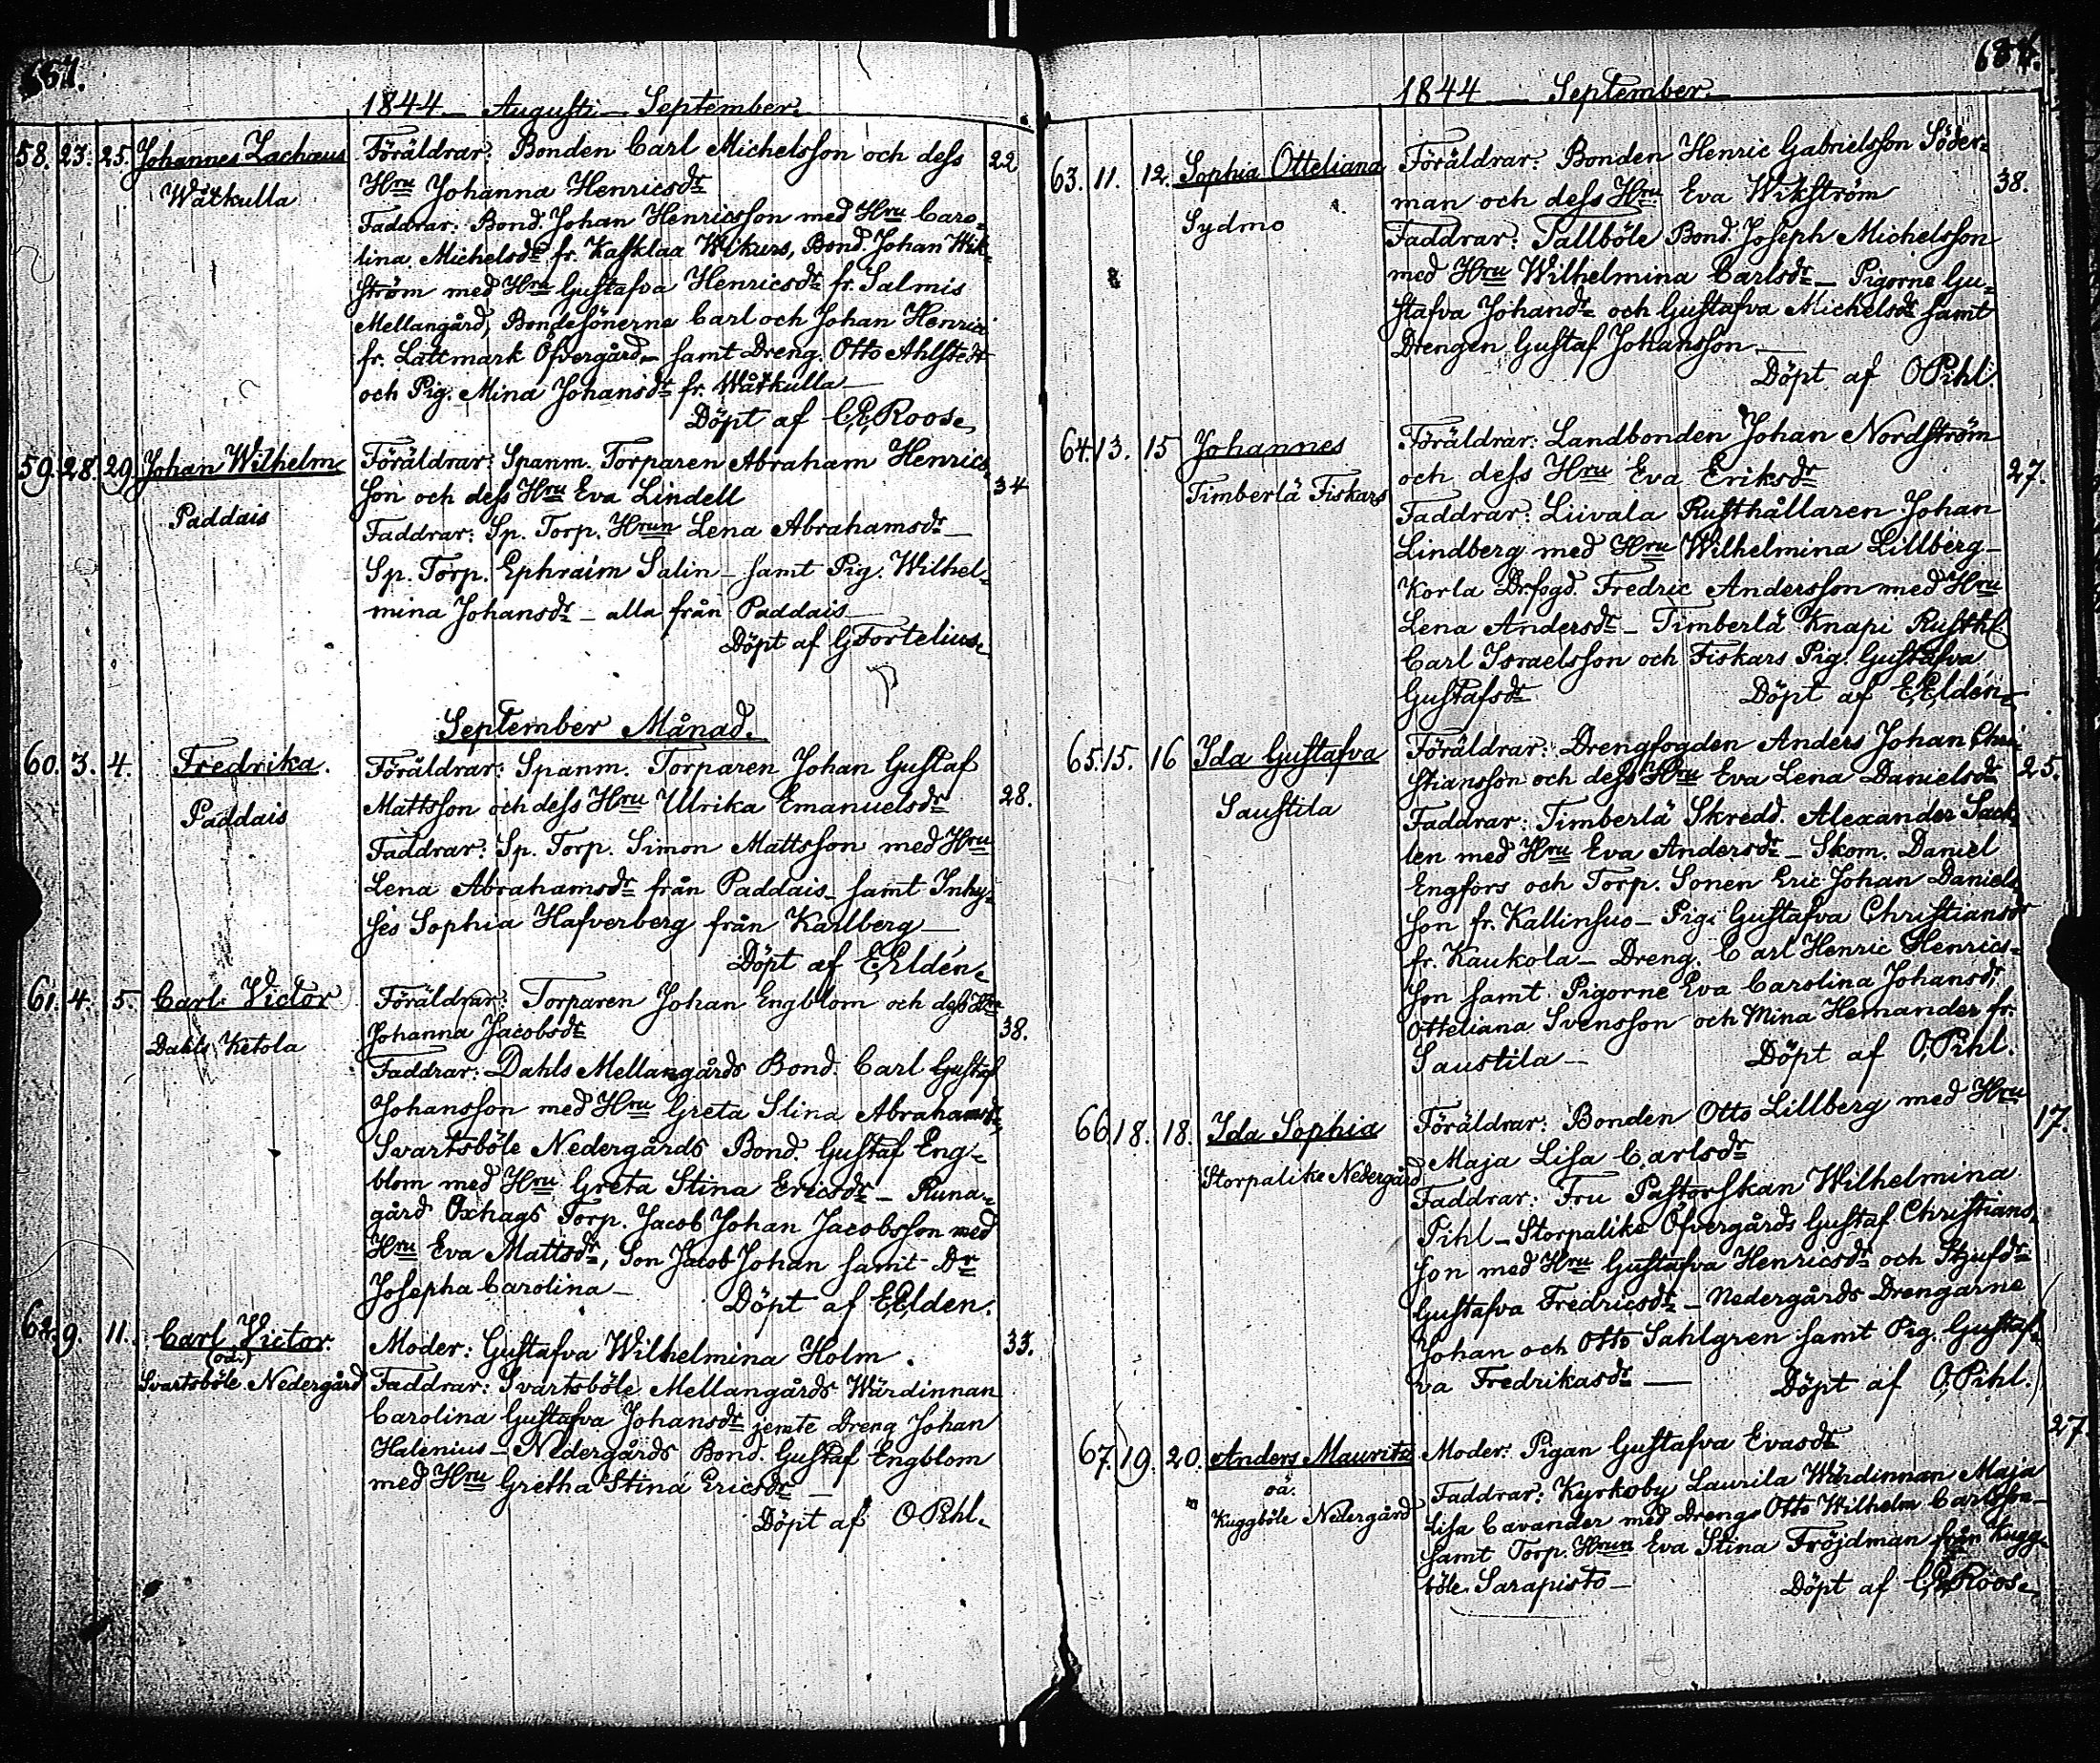 1844 – Augusti – September.
58. 23. 25. Johannes Zachæus
Wätkulla
Föräldrar: Bonden Carl Michelsson och dess 22
Hru Johanna Henricsdr
Faddrar: Bond. Johan Henricsson med Hru Caro-
lina Michelsdr fr. Kasklaa Wikurs, Bond. Johan Wik-
ström med Hru Gustafva Henricsdr fr. Salmis
Mellangård, Bondesönerne Carl och Johan Henrici
fr. Lattmark Öfvergård – samt Dreng. Otto Ahlstedt
och Pig. Mina Johansdr fr. Wätkulla –
Döpt af C.E. Roos.
59. 28. 29. Johan Wilhelm
Paddais
Föräldrar: Spanm. Torparen Abraham Henrics-
son och dess Hru Eva Lindell 34
Faddrar: Sp. Torp. Hrun Lena Abrahamsdr –
Sp. Torp. Ephraim Salin – samt Pig. Wilhel-
mina Johansdr – alla från Paddais –
Döpt af G Fortelius.
September Månad.
60. 3. 4. Fredrika.
Paddais
Föräldrar: Spanm. Torparen Johan Gustaf
Mattsson och dess Hru Ulrika Emanuelsdr 28.
Faddrar: Sp. Torp. Simon Mattsson med Hru
Lena Abrahamsdr från Paddais – samt Inhy-
ses Sophia Hafverberg från Karlberg –
Döpt af E. Eldén.
61. 4. 5. Carl Victor
Dahls Ketola
Föräldrar: Torparen Johan Engblom och dess Hru
Johanna Jacobsdr 38.
Faddrar: Dahls Mellangårds Bond. Carl Gustaf
Johansson med Hru Greta Stina Abrahamsdr,
Svartsböle Nedergårds Bond. Gustaf Eng-
blom med Hru Greta Stina Ericsdr – Runa-
gård Oxhags Torp. Jacob Johan Jacobsson med
Hru Eva Mattsdr, Son Jacob Johan samt Dr
Josepha Carolina –
Döpt af E. Elden.
62. 9. 11. Carl Victor.
(oä.)
Svartsböle Nedergård
Moder: Gustafva Wilhelmina Holm. 33.
Faddrar: Svartsböle Mellangårds Wärdinnan
Carolina Gustafva Johansdr jemte Dreng Johan
Halenius – Nedergårds Bond. Gustaf Engblom
med Hru Gretha Stina Ericsdr –
Döpt af O Pihl.
1844 – September.
63. 11. 12. Sophia Otteliana
Sydmo
Föräldrar: Bonden Henric Gabrielsson Söder-
man och dess Hru Eva Wikström 38.
Faddrar: Tallböle Bond. Joseph Michelsson
med Hru Wilhelmina Carlsdr – Pigorne Gu-
stafva Johandr och Gustafva Michelsdr samt
Drengen Gustaf Johansson –
Döpt af O Pihl.
64. 13. 15 Johannes
Timberlä Fiskars
Föräldrar: Landbonden Johan Nordström
och dess Hru Eva Eriksdr 27.
Faddrar: Liivala Rusthållaren Johan
Lindberg med Hru Wilhelmina Lillberg –
Korla Dr.fogd. Fredric Andersson med Hru
Lena Andersdr – Timberlä Knapi Rusth.
Carl Israelsson och Fiskars Pig. Gustafva
Gustafsdr Döpt af E. Eldén.
65. 15. 16 Ida Gustafva
Saustila
Föräldrar: Drengfogden Anders Johan Chri-
stiansson och dess Hru Eva Lena Danielsdr 25.
Faddrar: Timberlä Skredd. Alexander Sack-
len med Hru Eva Andersdr – Skom. Daniel
Engfors och Torp. Sonen Eric Johan Daniels-
son fr. Kallinsuo – Pig. Gustafva Christiansdr
fr. Kaukola – Dreng. Carl Henric Henrics-
son samt Pigorne Eva Carolina Johansdr,
Otteliana Svensson och Mina Hernander fr.
Saustila – Döpt af O. Pihl.
66. 18. 18. Ida Sophia
Storpalike Nedergård
Föräldrar: Bonden Otto Lillberg med Hru 17.
Maja Lisa Carlsdr
Faddrar: Fru Pastorskan Wilhelmina
Pihl – Storpalike Öfvergårds Gustaf Christians-
son med Hru Gustafva Henricsdr och Stjufdr
Gustafva Fredricsdr – Nedergårds Drengarne
Johan och Otto Sahlgren samt Pig. Gustaf-
va Fredrikasdr – Döpt af O. Pihl.
67. 19. 20. Anders Mauritz
oä.
Kuggböle Nedergård
Moder: Pigan Gustafva Evasdr 27.
Faddrar: Kyrkoby Laurila Wärdinnan Maja
Lisa Cavander med Dreng. Otto Wilhelm Carlsson –
samt Torp. Hrun Eva Stina Fröjdman från Kugg-
böle Sarapisto – Döpt af C.E. Roos.